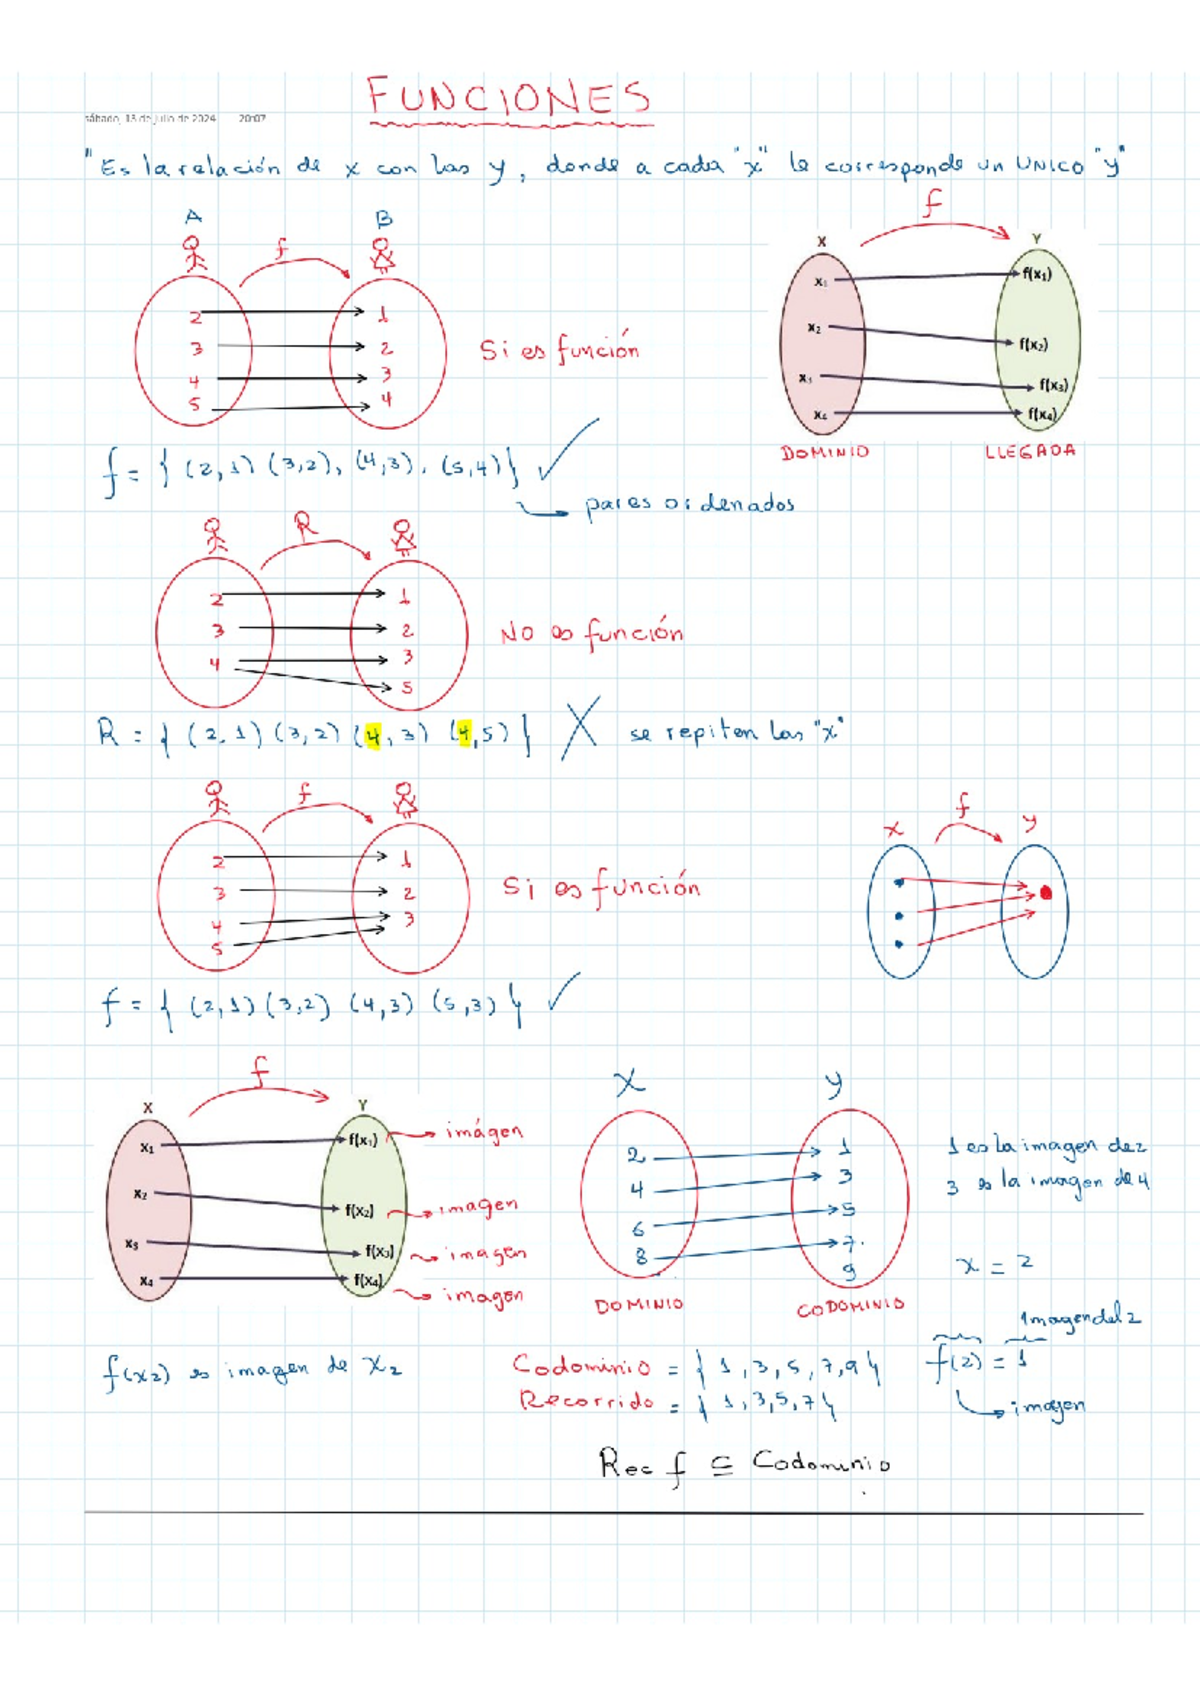 FUNCIONES
sábado, 13 de julio de 2024 20:07
"Es la relación de x con las y, donde a cada "x" le corresponde un UNICO "y"
A f B
2 1
3 2
4 3
5 4
Si es función
f
X Y
x₁ f(x₁)
x₂ f(x₂)
x₃ f(x₃)
x₄ f(x₄)
DOMINIO LLEGADA
f = { (2,1) (3,2), (4,3), (5,4)}
pares ordenados
R
2 1
3 2
4 3
5
No es función
R = { (2,1) (3,2) (4,3) (4,5) } X se repiten las "x"
f
2 1
3 2
4 3
5
Si es función
f
x y
f = { (2,1) (3,2) (4,3) (5,3) }
f
X Y
x₁ f(x₁) imágen
x₂ f(x₂) imagen
x₃ f(x₃) imagen
x₄ f(x₄) imagen
x y
2 1
4 3
6 5
8 7
9
DOMINIO CODOMINIO
1 es la imagen de 2
3 es la imagen de 4
x = 2
Imagen del 2
f(2) = 1
imagen
f(x₂) es imagen de x₂
Codominio = { 1, 3, 5, 7, 9 }
Recorrido = { 1, 3, 5, 7 }
Rec f ⊆ Codominio